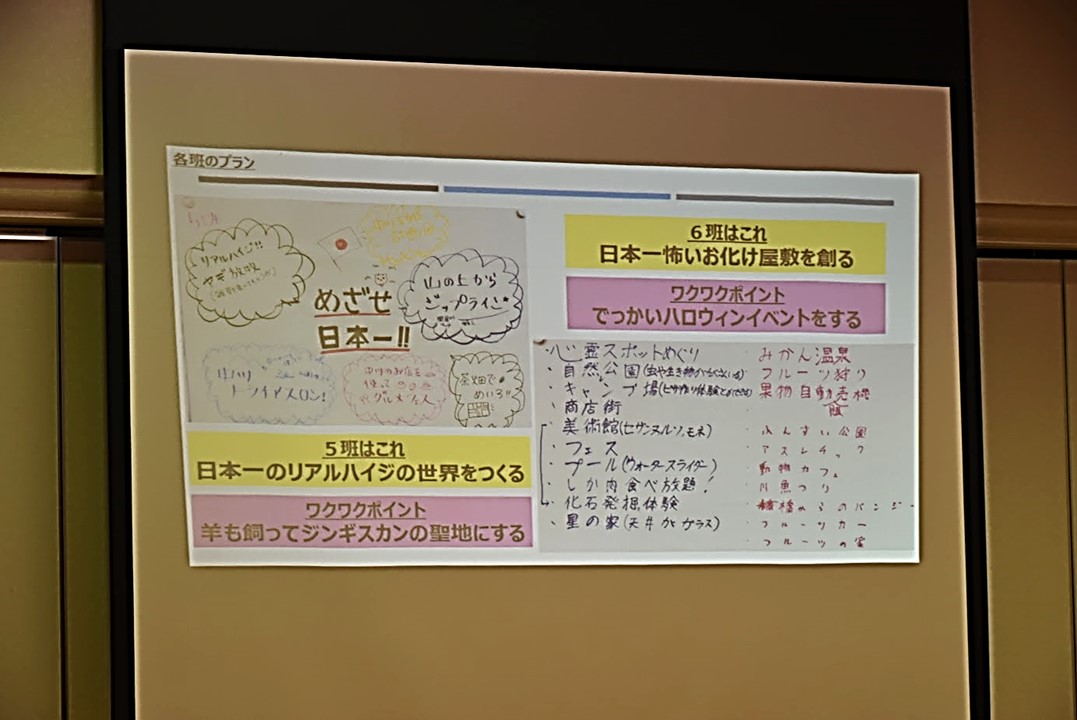 各班のプラン
リアルハイジ!!
ヤギ放牧
めざせ
日本一!!
山の上から
ジップライン
トライアスロン!
使って
グルメ
茶畑で
めいろ!!
5班はこれ
日本一のリアルハイジの世界をつくる
ワクワクポイント
羊も飼ってジンギスカンの聖地にする
6班はこれ
日本一怖いお化け屋敷を創る
ワクワクポイント
でっかいハロウィンイベントをする
・心霊スポットめぐり
・自然公園
・キャンプ場
・商店街
・美術館(セザンヌ、ルソー、モネ)
・フェス
・プール(ウォータースライダー)
・しか肉食べ放題!
・化石発掘体験
・星の家(天井がガラス)
・みかん温泉
・フルーツ狩り
・果物自動販売機
・ふんすい公園
・アスレチック
・動物カフェ
・川魚つり
・フルーツカー
・フルーツの家